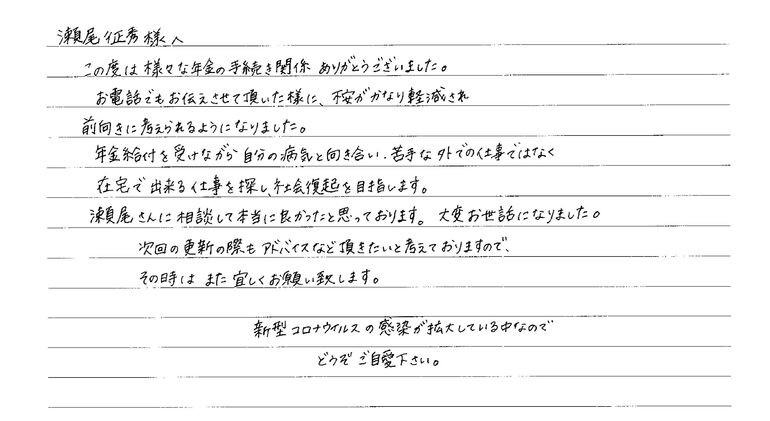 瀬尾征秀様へ
この度は様々な年金の手続き関係 ありがとうございました。
お電話でもお伝えさせて頂いた様に、不安がかなり軽減され
前向きに考えられるようになりました。
年金給付を受けながら自分の病気と向き合い、苦手な外での仕事ではなく
在宅で出来る仕事を探し、社会復起を目指します。
瀬尾さんに相談して本当に良かったと思っております。大変お世話になりました。
次回の更新の際もアドバイスなど頂きたいと考えておりますので、
その時は また 宜しくお願い致します。
新型コロナウイルスの感染が拡大している中なので
どうぞ ご自愛下さい。